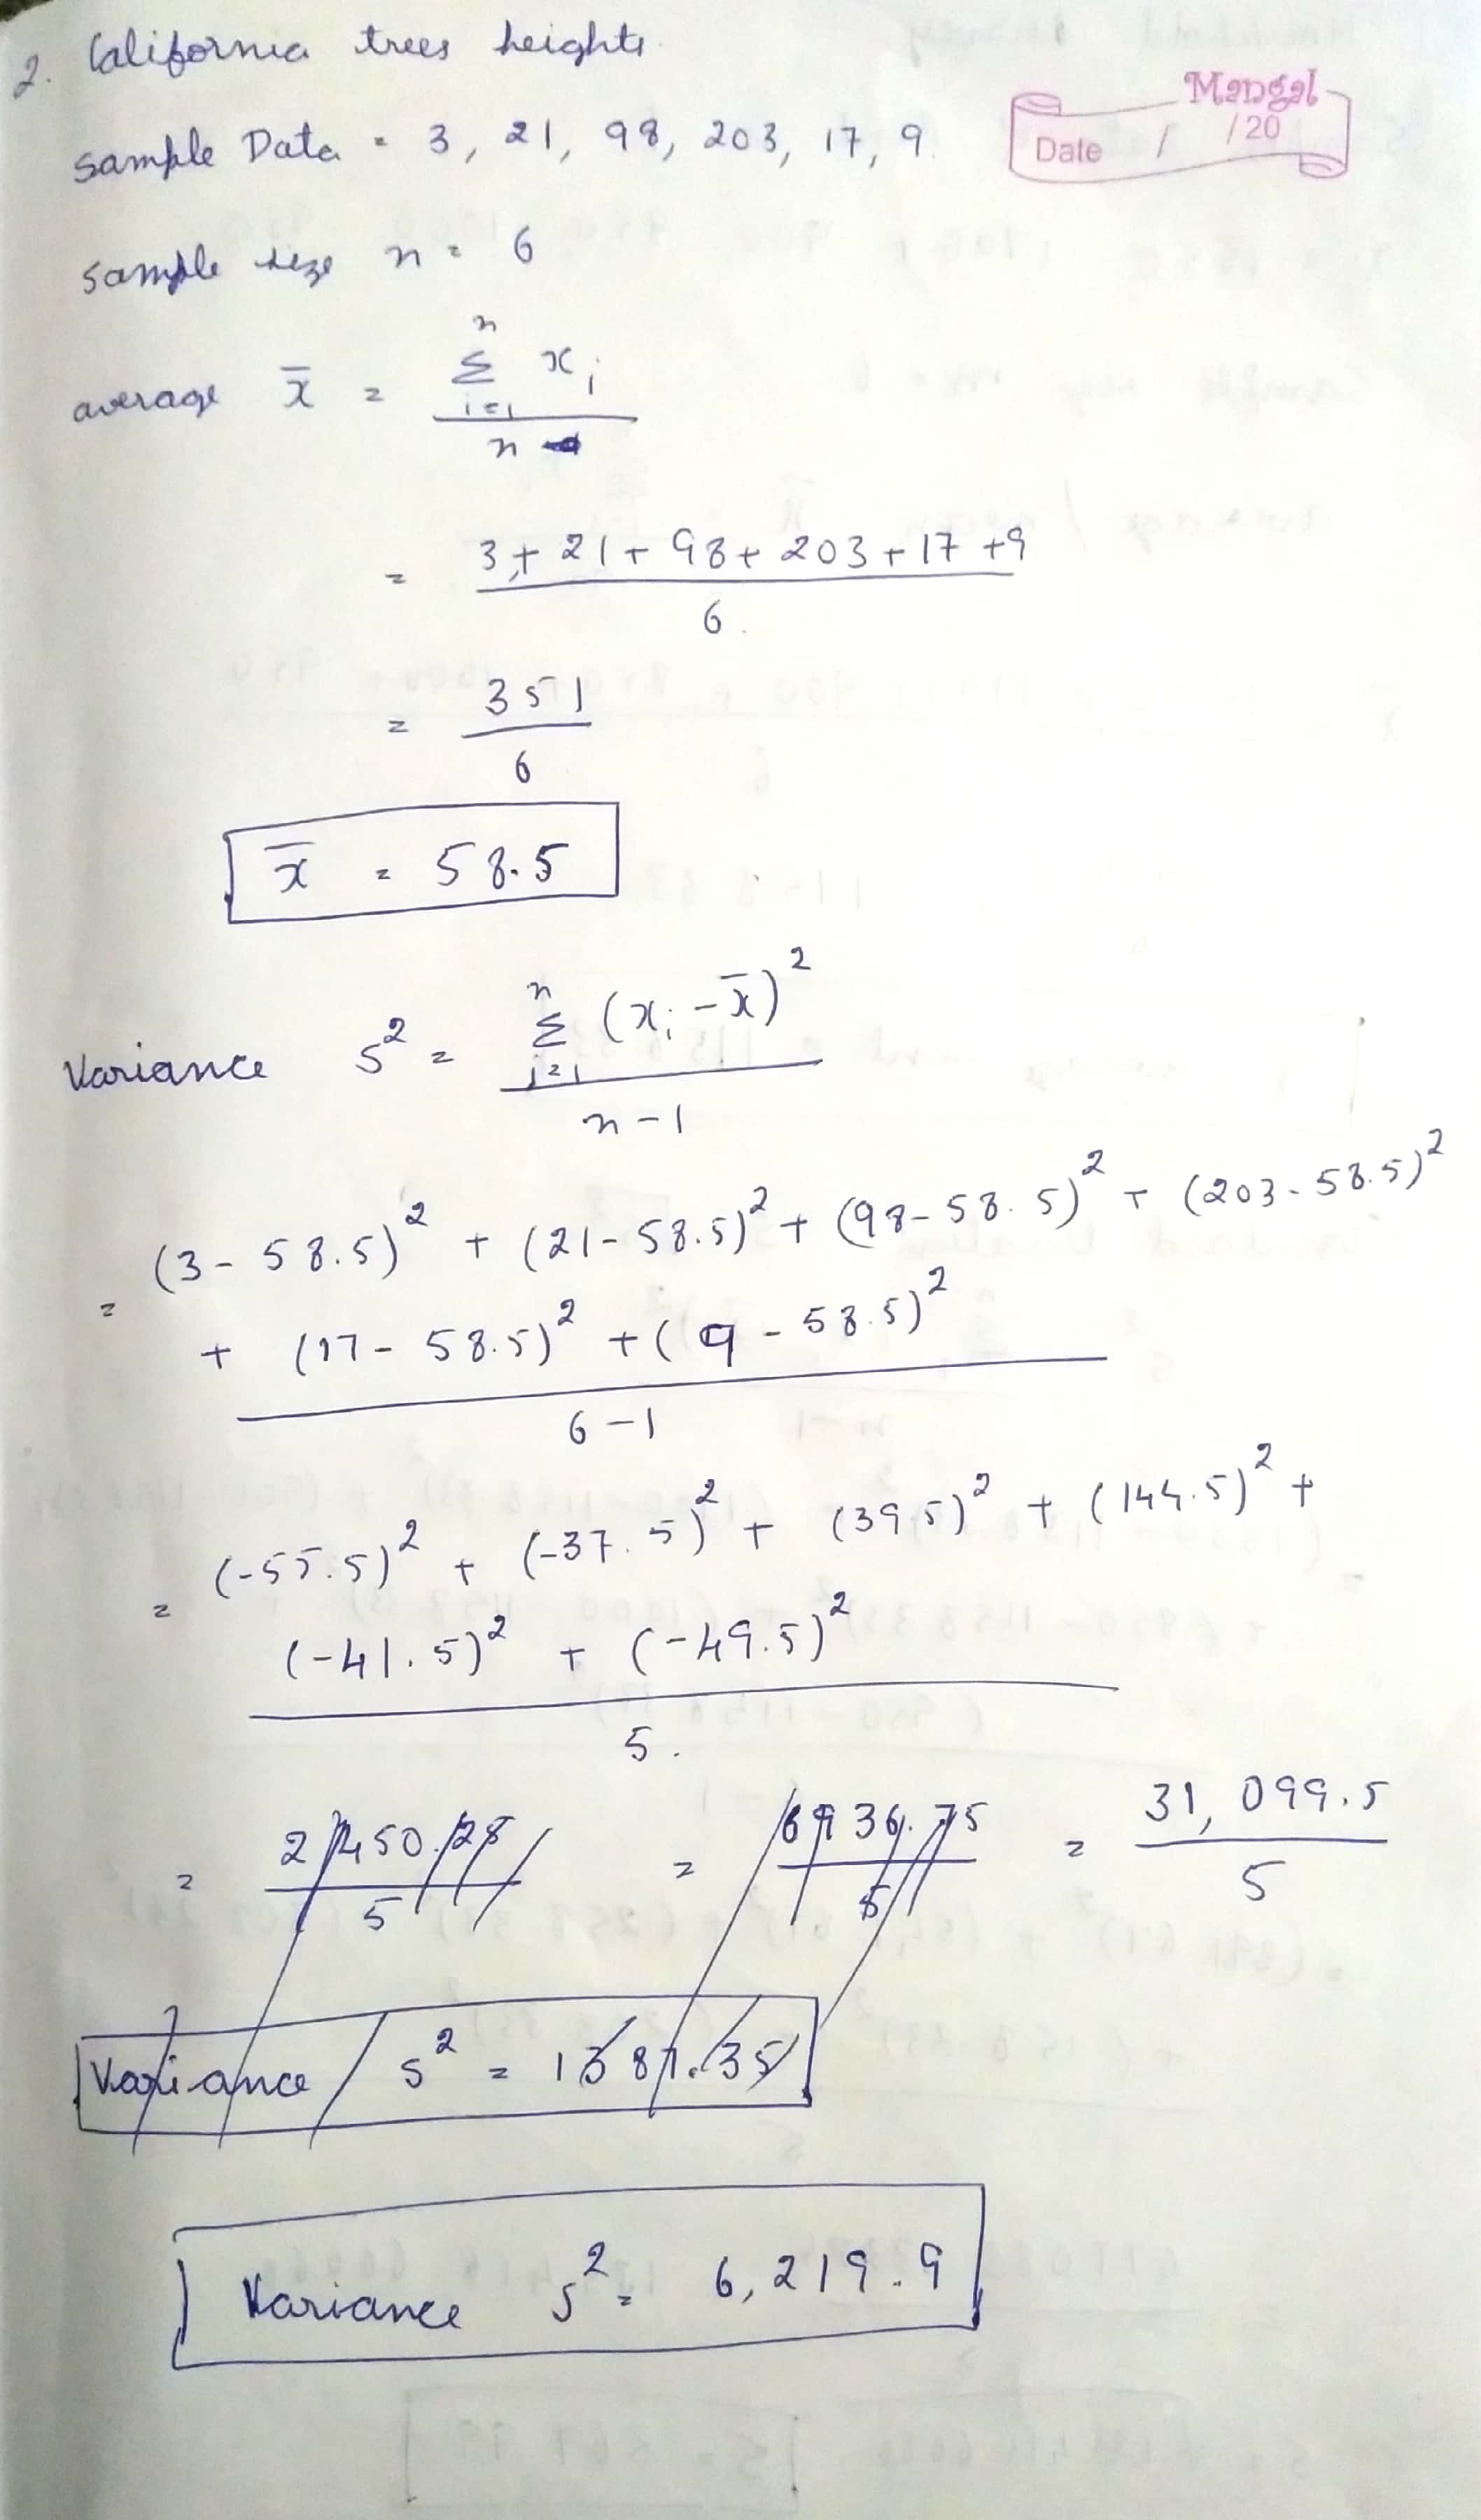 2. California trees heights
Mangal
Date / /20
Sample Data = 3, 21, 98, 203, 17, 9.
Sample size n = 6
average x̄ = Σ (i=1 to n) xᵢ / n
= 3 + 21 + 98 + 203 + 17 + 9 / 6
= 351 / 6
x̄ = 58.5
Variance s² = Σ (i=1 to n) (xᵢ - x̄)² / n - 1
= (3 - 58.5)² + (21 - 58.5)² + (98 - 58.5)² + (203 - 58.5)²
+ (17 - 58.5)² + (9 - 58.5)²
6 - 1
= (-55.5)² + (-37.5)² + (39.5)² + (144.5)² +
(-41.5)² + (-49.5)²
5.
= = 6936.75 / 5 = 31,099.5 / 5
Variance s² = 1387.35
Variance s² = 6,219.9